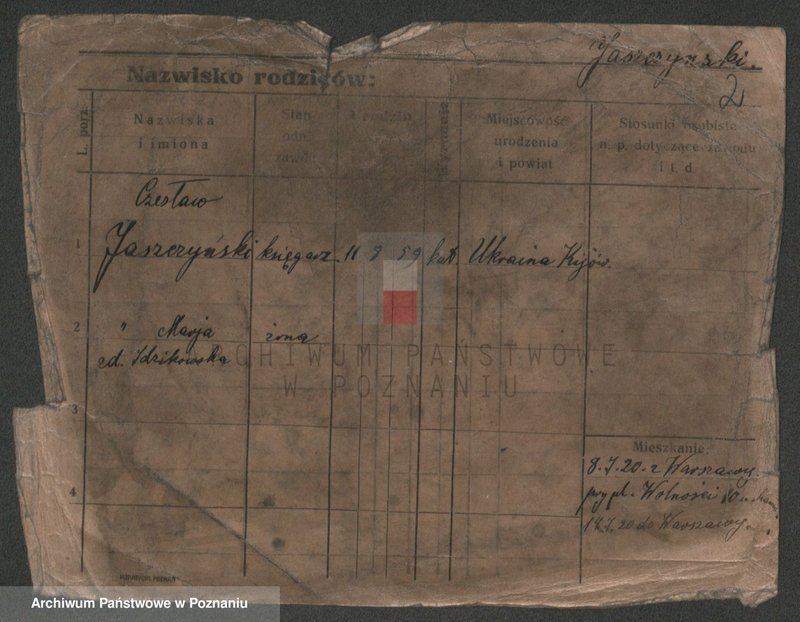 Jaszczyński.
2
Nazwisko rodziców:
L. porz.
Nazwiska
i imiona
Stan
odn.
zawód
Miejscowość
urodzenia
i powiat
Stosunki osobiste
n. p. dotyczące zawodu
i t. d.
Czesław
1 Jaszczyński księgarz. 11 9 59 kat Ukraina Kijów.
2 " Marja żona
zd. Idzikowska
ARCHIWUM PAŃSTWOWE
W POZNANIU
3
Mieszkanie:
8.7.20. z Warszawy.
przy pl. Wolności 10
4
14.7.20 do Warszawy.
Archiwum Państwowe w Poznaniu